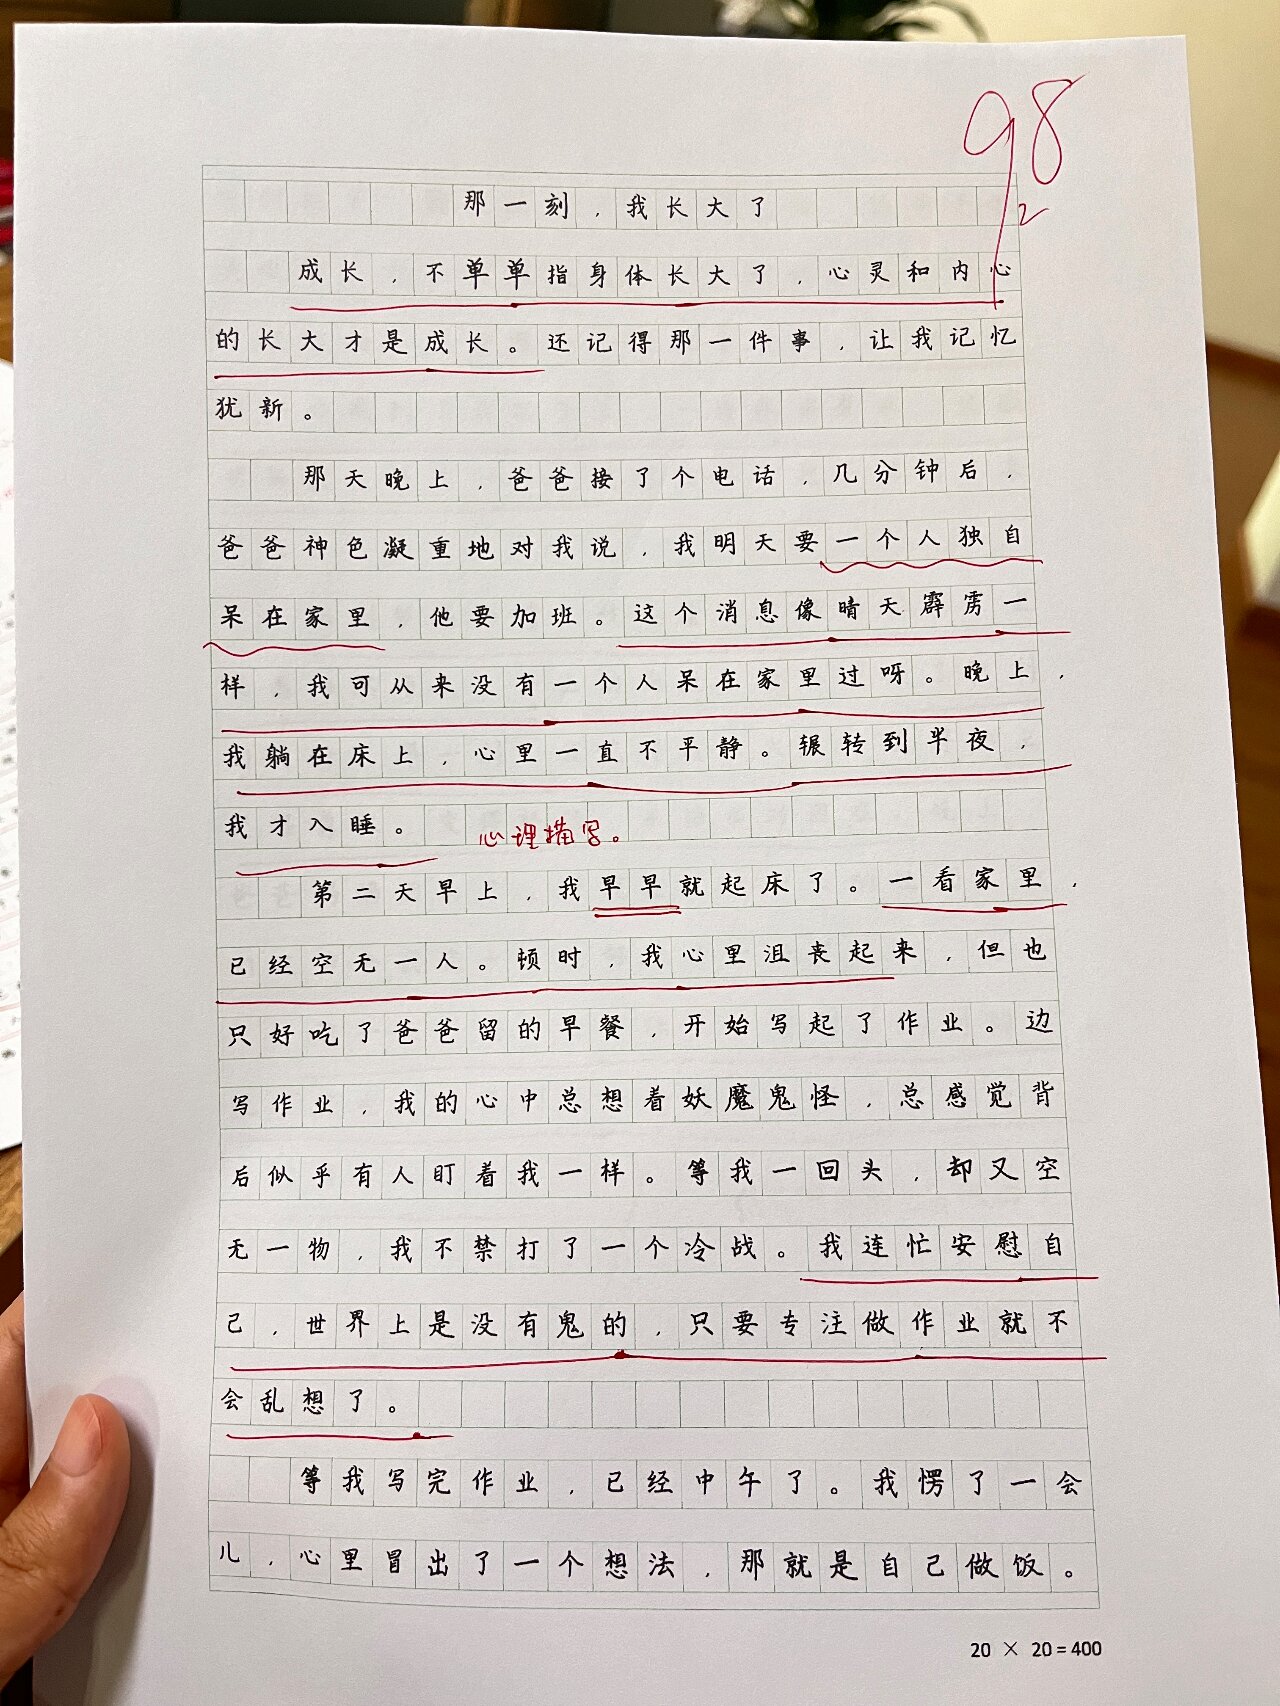 98
2
那一刻，我长大了
成长，不单单指身体长大了，心灵和内心
的长大才是成长。还记得那一件事，让我记忆
犹新。
那天晚上，爸爸接了个电话，几分钟后，
爸爸神色凝重地对我说，我明天要一个人独自
呆在家里，他要加班。这个消息像晴天霹雳一
样，我可从来没有一个人呆在家里过呀。晚上，
我躺在床上，心里一直不平静。辗转到半夜，
我才入睡。
心理描写。
第二天早上，我早早就起床了。一看家里，
已经空无一人。顿时，我心里沮丧起来，但也
只好吃了爸爸留的早餐，开始写起了作业。边
写作业，我的心中总想着妖魔鬼怪，总感觉背
后似乎有人盯着我一样。等我一回头，却又空
无一物，我不禁打了一个冷战。我连忙安慰自
己，世界上是没有鬼的，只要专注做作业就不
会乱想了。
等我写完作业，已经中午了。我愣了一会
儿，心里冒出了一个想法，那就是自己做饭。
20 × 20=400